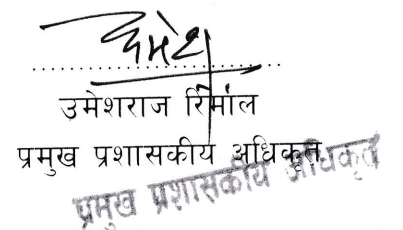 उमेश
उमेशराज रिमाल
प्रमुख प्रशासकीय अधिकृत
प्रमुख प्रशासकीय अधिकृत